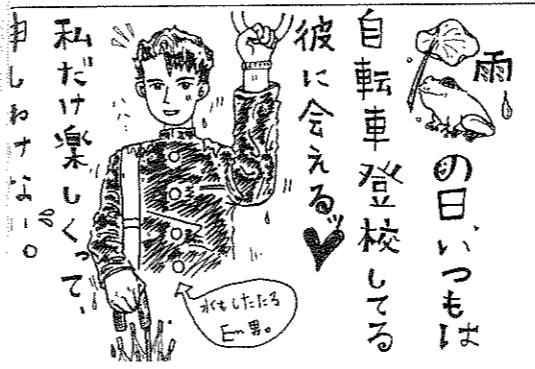 雨の日、いつもは
自転車登校してる
彼に会える♥
私だけ楽しくって、
申しわけないー。
水もしたたる
Em男。